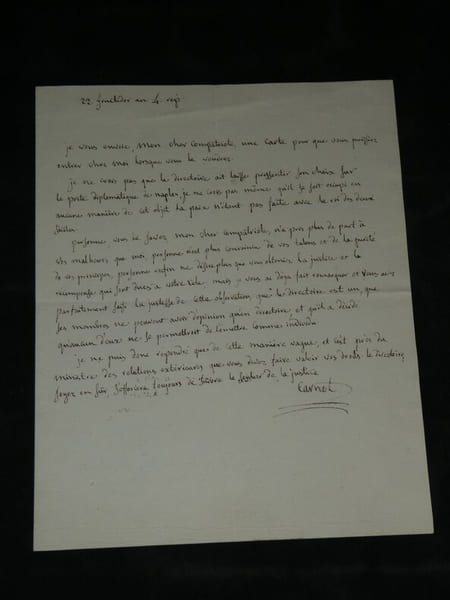 22. fructidor an 4. rep.
je vous envoie, mon cher compatriote, une carte pour que vous puissiez
entrer chez moi lorsque vous le voudrez.
je ne crois pas que le directoire ait laissé pressentir son choix sur
le poste diplomatique de naples, je ne crois pas même qu'il se soit occupé en
aucune manière de cet objet la paix n'étant pas faite avec le roi des deux
siciles.
personne vous le savez mon cher compatriote, n'a pris plus de part à
vos malheurs que moi, personne n'est plus convaincu de vos talens et de la pureté
de vos principes, personne enfin ne désire plus que vous obteniez la justice et la
récompense qui sont dues à votre zèle. mais je vous ai déjà fait observer et vous avez
parfaitement saisi la justesse de cette observation, que le directoire est un, que
ses membres ne peuvent avoir d'opinion qu'en directoire, et qu'il a décidé
qu'aucun d'eux ne se permettroit de l'émettre comme individu
je ne puis donc répondre que de cette manière vague, et c'est près du
ministre des relations extérieures que vous devez faire valoir vos droits. le directoire,
soyez en sûr, s'efforcera toujours de suivre le sentier de la justice
Carnot